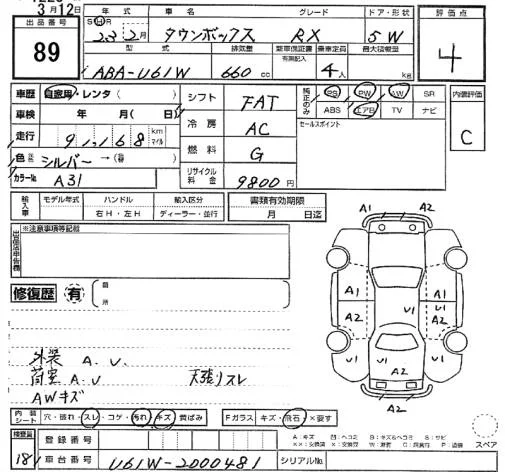 3月12日
出品番号
89
年式 車名 グレード ドア・形状
S H R 23年2月 タウンボックス RX 5W
型式 排気量 新車保証書 有無記入 乗車定員 最大積載量
ABA-U61W 660cc 4人 kg
評価点
4
車歴 自家用・レンタ( )
車検 年 月( 日)
走行 91,168 km マイル
色 シルバー→
カラーNo. A31
シフト FAT
冷房 AC
燃料 G
リサイクル料金 9800円
純正のみ PS PW AW SR
ABS エアB TV ナビ
セールスポイント
内装評価
C
輸入車 モデル年式 ハンドル 輸入区分 書類有効期限
右H・左H ディーラー・並行 月 日迄
※注意事項等記載
修復歴 有 箇所
A1 A2
A1 A1
A2 U1 U1 A2
U1 U1
A2
外装 A.U.
荷室 A.U 天張リスレ
AWキズ
内装シート 穴・破れ・スレ・コゲ・汚れ・キズ・黄ばみ Fガラス キズ・飛石・×要す
スペア
検査員
181
登録番号
車台番号 U61W-2000481 シリアルNo.